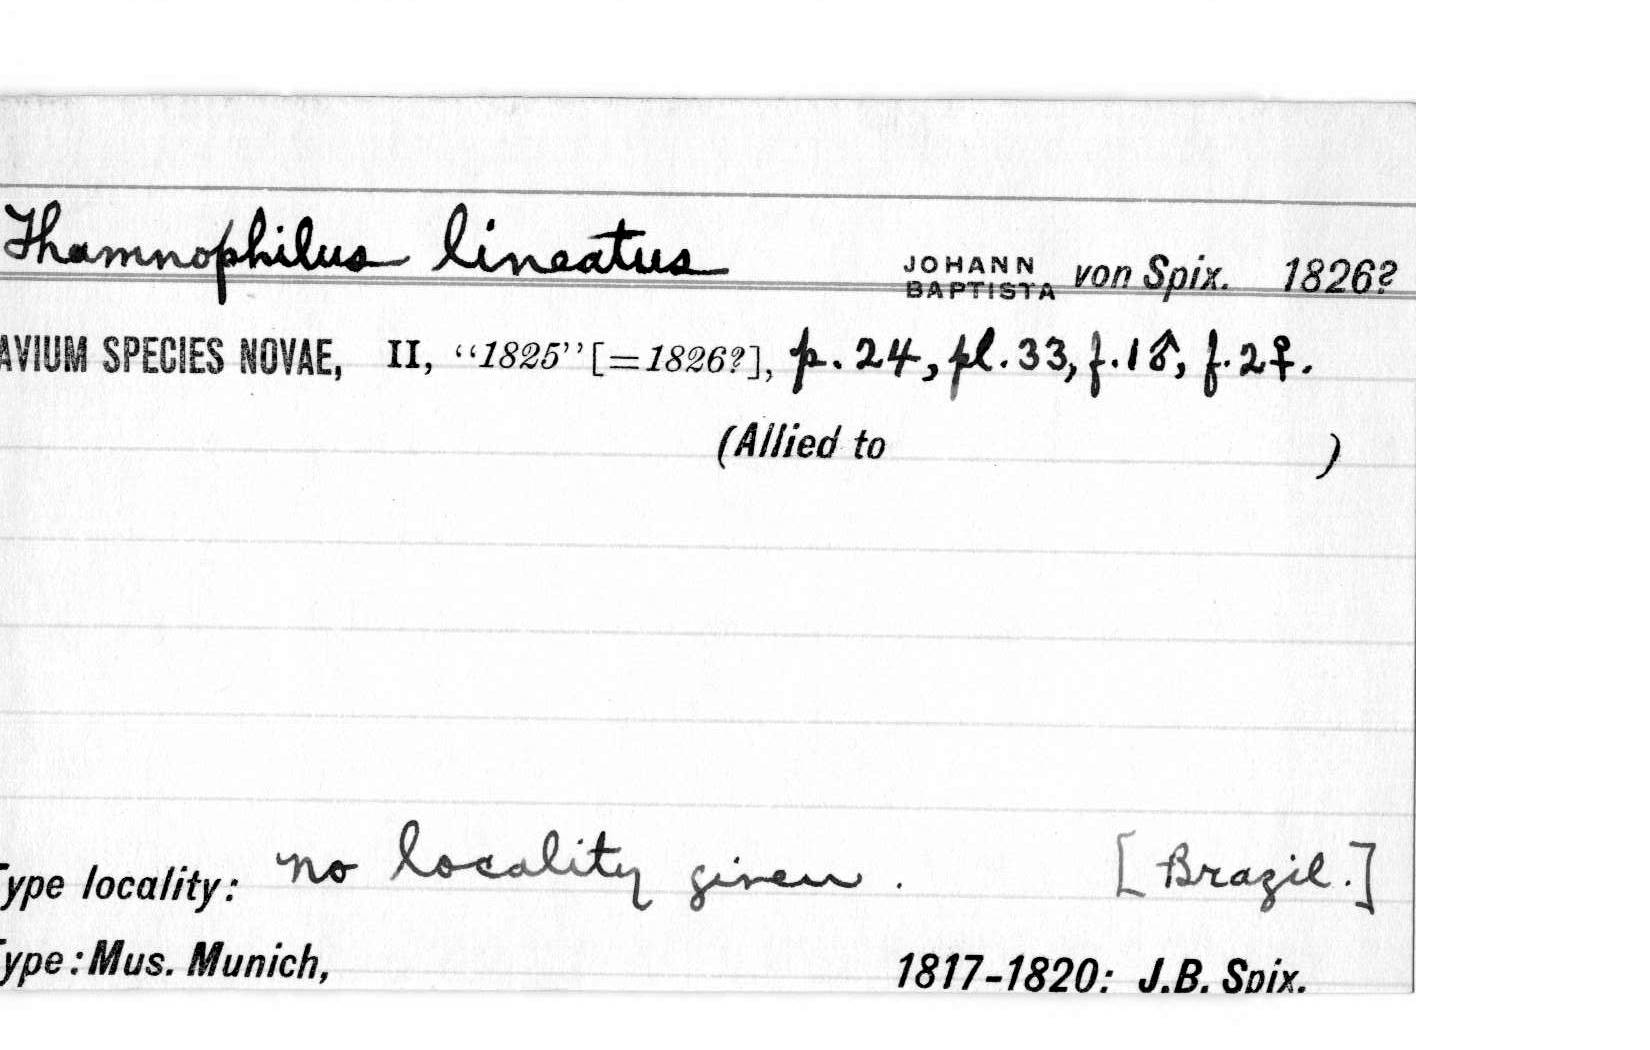 Thamnophilus lineatus JOHANN BAPTISTA von Spix. 1826?
AVIUM SPECIES NOVAE, II, “1825” [=1826?], p. 24, pl. 33, f. 1 ♂, f. 2 ♀.
(Allied to )
Type locality: no locality given. [Brazil.]
Type: Mus. Munich, 1817-1820: J.B. Spix.